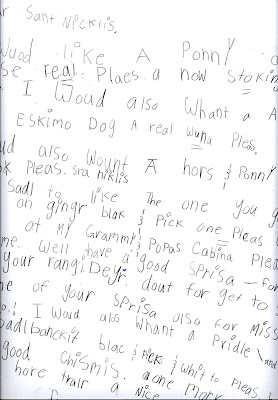 r Sant Nicklis.
Wud like A Ponny
be real. Plaes. a now Stokin
. I Woud also Whant a A
Eskimo Dog A real Wuna Pleas.
ud also Wount A hors & Ponny
ok Pleas. Sna Niklis
Sadl to like The one you g
on gingr blak & Pick one Pleas
at My Grammy & Popas Cabina Plea
me. Well have a good Sprisa - for
Your rangiDeyr. dout for get to
ne of your Sprisa also for Miss
o! I Woud alos Whant a Pridle \and
Sadlbanckit blac & Pick & Whit to Pleas.
good Chismis. aone mork
hore tralr a Nice